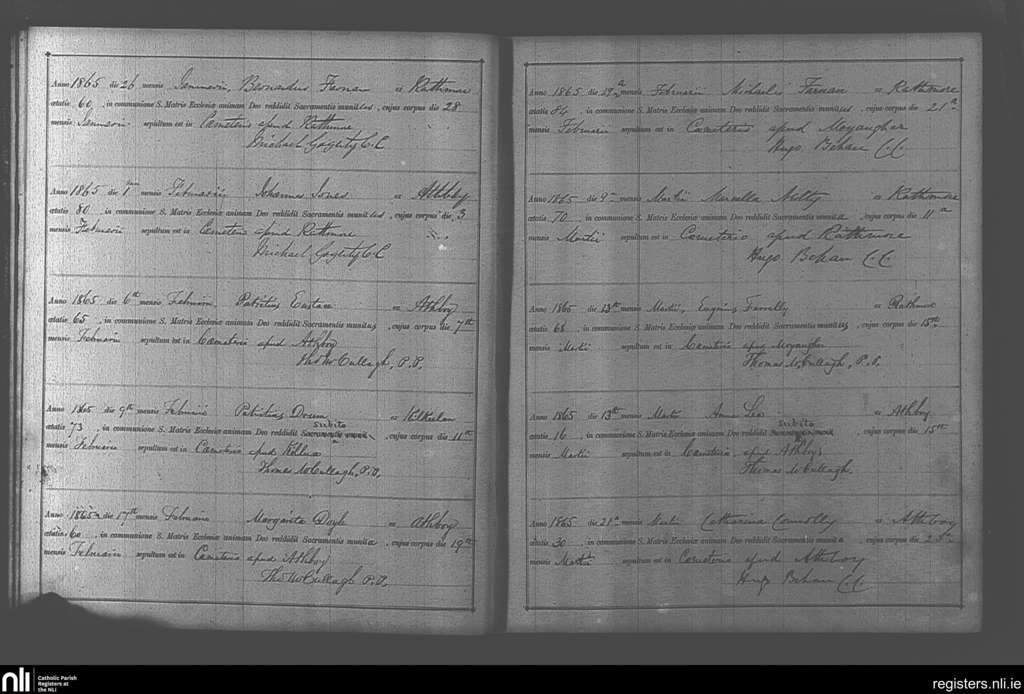 Anno 1865 die 26 mensis Januarii, Bernardus Farnan ex Rathmore
ætatis 60, in communione S. Matris Ecclesiæ animam Deo reddidit Sacramentis munitus, cujus corpus die 28
mensis Januarii sepultum est in Cœmeterio apud Rathmore
Michael C.C.
Anno 1865 die 1 mensis Februarii Johannes Jones ex Athboy
ætatis 80, in communione S. Matris Ecclesiæ animam Deo reddidit Sacramentis munitus, cujus corpus die 3
mensis Februarii sepultum est in Cœmeterio apud Rathmore
Michael C.C
Anno 1865 die 6th mensis Februarii Patritius Eustace ex Athboy
ætatis 65, in communione S. Matris Ecclesiæ animam Deo reddidit Sacramentis munitus, cujus corpus die 7th
mensis Februarii sepultum est in Cœmeterio apud Athboy
Thos McCullagh, P.P.
Anno 1865 die 9th mensis Februarii Patritius ex
ætatis 73, in communione S. Matris Ecclesiæ animam Deo reddidit subito Sacramentis munit, cujus corpus die 11th
mensis Februarii sepultum est in Cœmeterio apud
Thomas McCullagh, P.P.
Anno 1865 die 17th mensis Februarii Margarita Doyle ex Athboy
ætatis 60, in communione S. Matris Ecclesiæ animam Deo reddidit Sacramentis munita, cujus corpus die 19th
mensis Februarii sepultum est in Cœmeterio apud Athboy
Thos McCullagh P.P.
Anno 1865 die 19 a mensis Februarii Michaelis Farnan ex Rathmore
ætatis 84, in communione S. Matris Ecclesiæ animam Deo reddidit Sacramentis munitus, cujus corpus die 21 a
mensis Februarii sepultum est in Cœmeterio apud Moyangher
Hugo Behan C.C.
Anno 1865 die 9 mensis Martii Marcella ex Rathmore
ætatis 70, in communione S. Matris Ecclesiæ animam Deo reddidit Sacramentis munita, cujus corpus die 11 a
mensis Martii sepultum est in Cœmeterio apud Rathmore
Hugo Behan C.C.
Anno 1865 die 13th mensis Martii, Eugenius Farrelly ex Rathmore
ætatis 68, in communione S. Matris Ecclesiæ animam Deo reddidit Sacramentis munitus, cujus corpus die 15th
mensis Martii sepultum est in Cœmeterio apud Moyangher
Thomas McCullagh, P.P.
Anno 1865 die 13th mensis Martii Anna Lee ex Athboy
ætatis 16, in communione S. Matris Ecclesiæ animam Deo reddidit subito Sacramentis munit, cujus corpus die 15th
mensis Martii sepultum est in Cœmeterio, apud Athboy
Thomas McCullagh.
Anno 1865 die 21 a mensis Martii Catharina Connolly ex Athboy
ætatis 30, in communione S. Matris Ecclesiæ animam Deo reddidit Sacramentis munita, cujus corpus die
mensis Martii sepultum est in Cœmeterio apud Athboy
Hugo Behan C.C.
nli Catholic Parish Registers at the NLI
registers.nli.ie